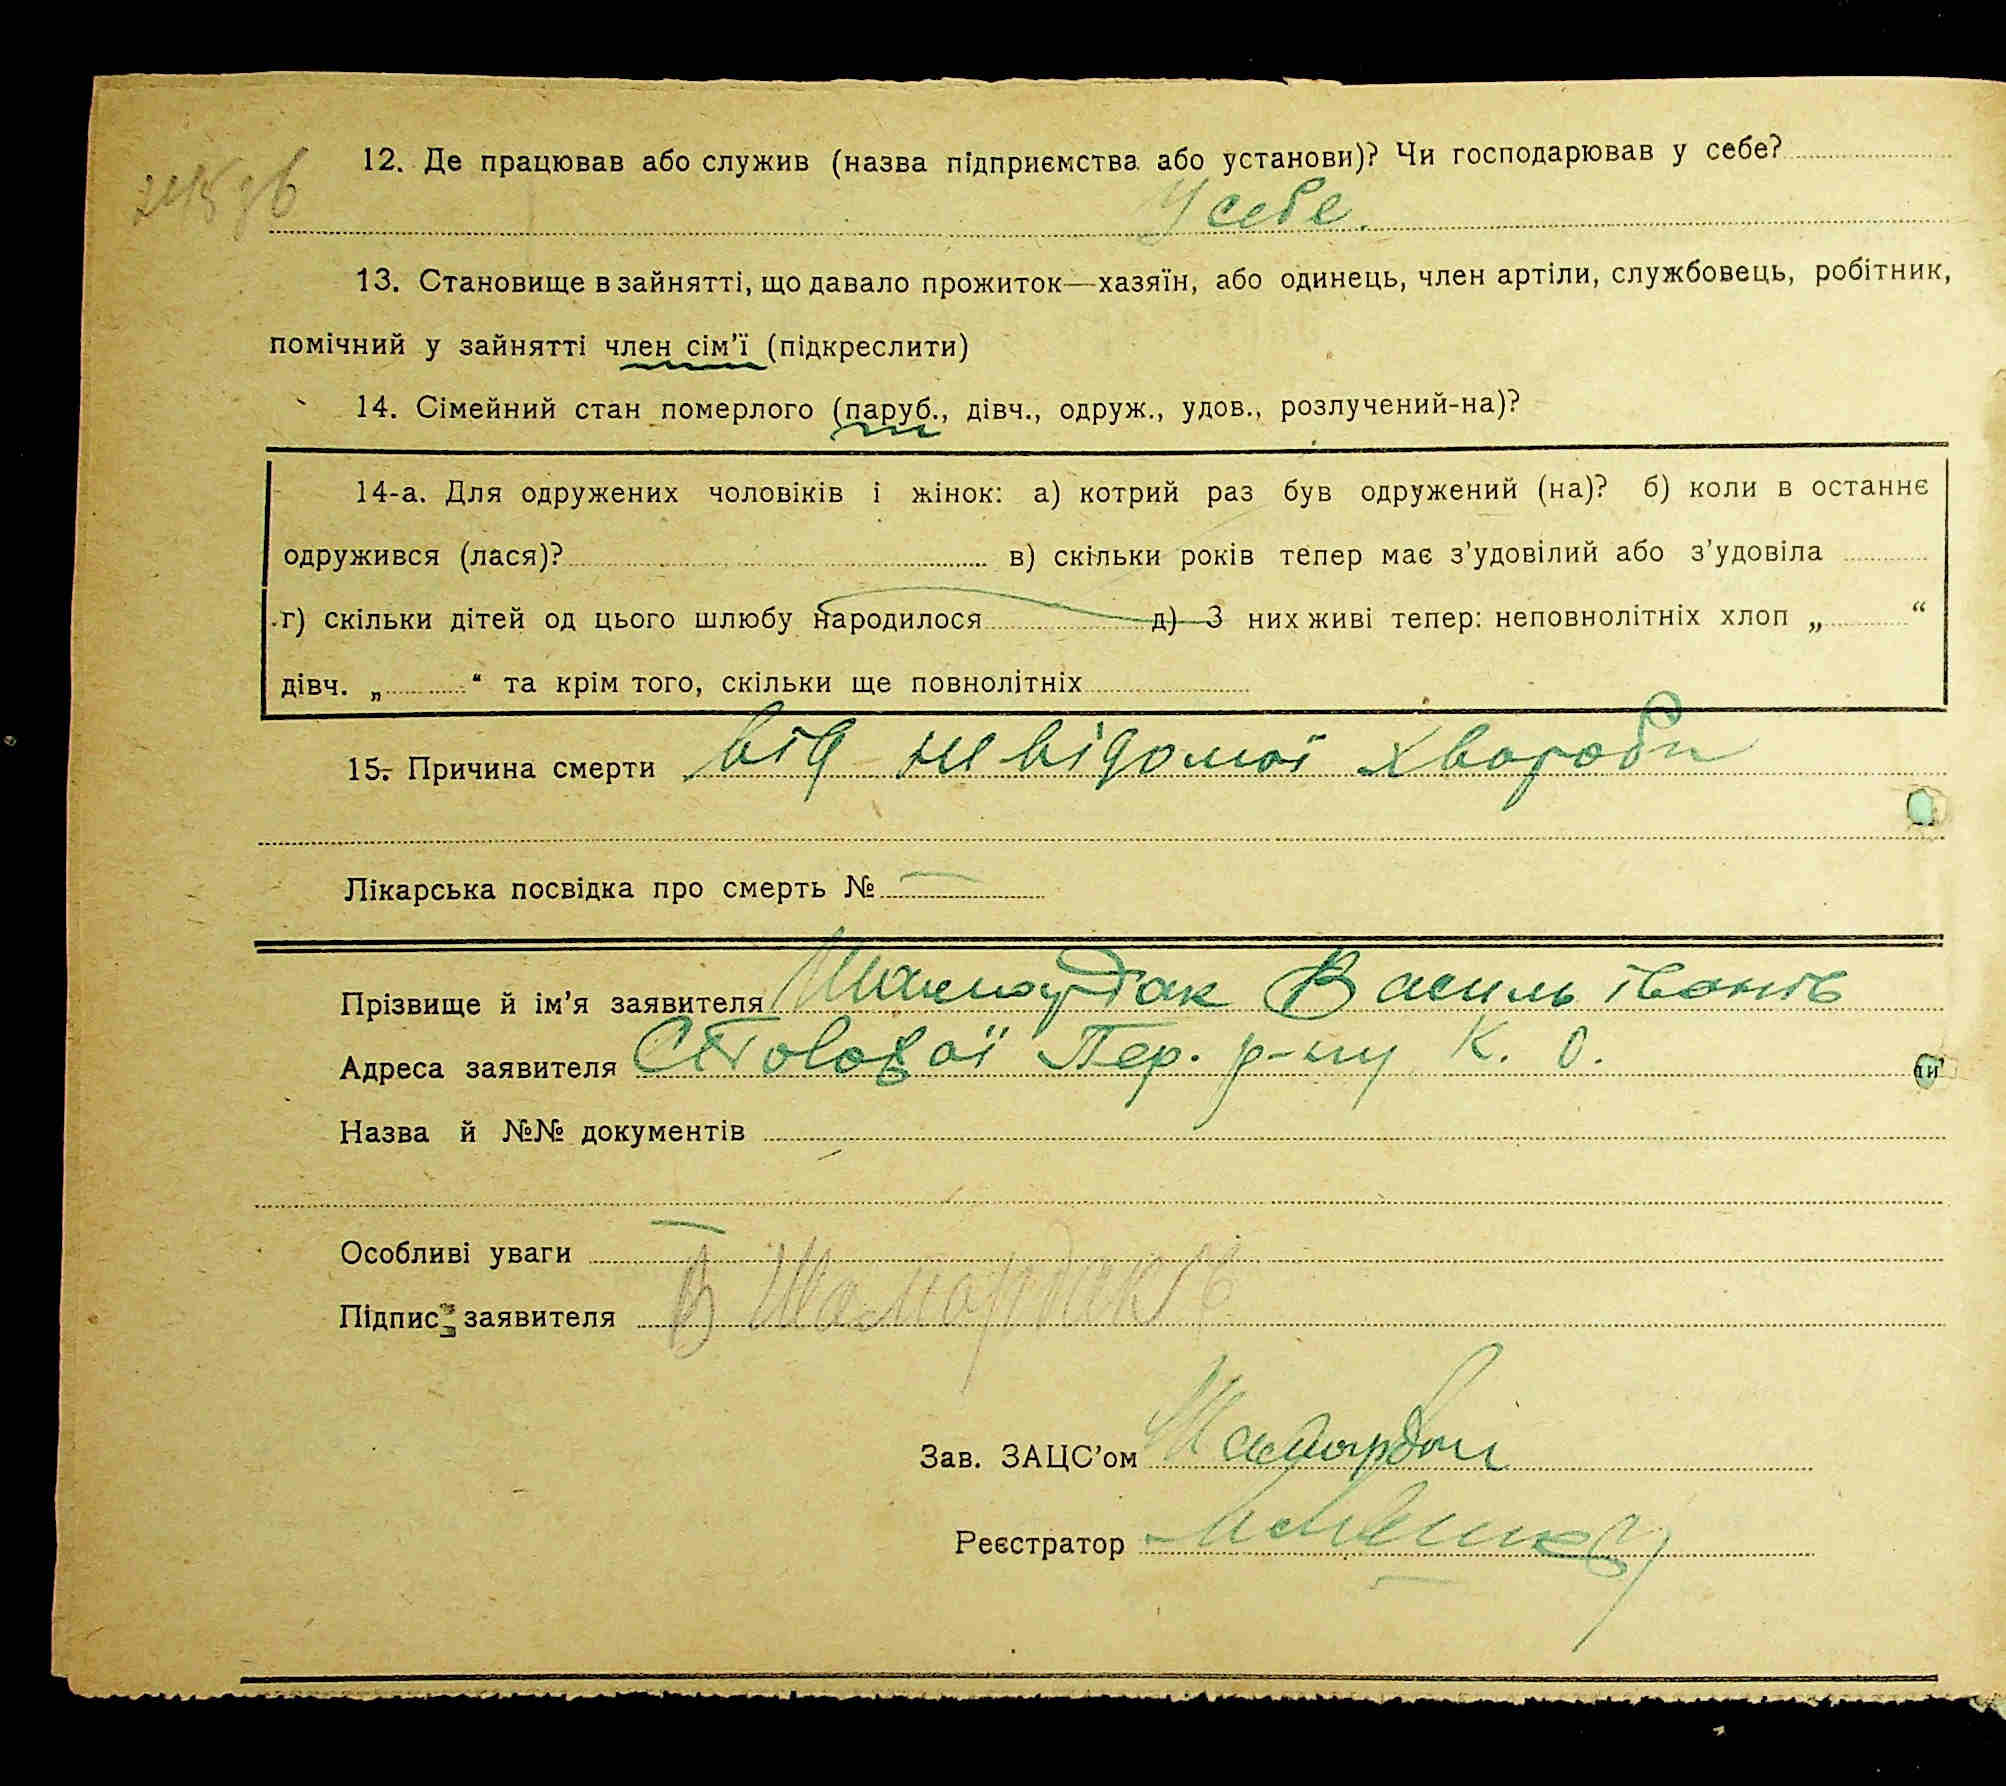 12. Де працював або служив (назва підприємства або установи)? Чи господарював у себе?
У себе.
13. Становище в зайнятті, що давало прожиток—хазяїн, або одинець, член артіли, службовець, робітник,
помічний у зайнятті член сім'ї (підкреслити)
14. Сімейний стан померлого (паруб., дівч., одруж., удов., розлучений-на)?
14-а. Для одружених чоловіків і жінок: а) котрий раз був одружений (на)? б) коли в останнє
одружився (лася)? в) скільки років тепер має з'удовілий або з'удовіла
г) скільки дітей од цього шлюбу народилося д) З них живі тепер: неповнолітніх хлоп „ “
дівч. „ “ та крім того, скільки ще повнолітніх
15. Причина смерти від невідомої хвороби
Лікарська посвідка про смерть №
Прізвище й ім'я заявителя Шамордак Василь Іванів
Адреса заявителя Пер. р-ну К. О.
Назва й №№ документів
Особливі уваги
Підпис заявителя В Шамордак
Зав. ЗАЦС'ом
Реєстратор